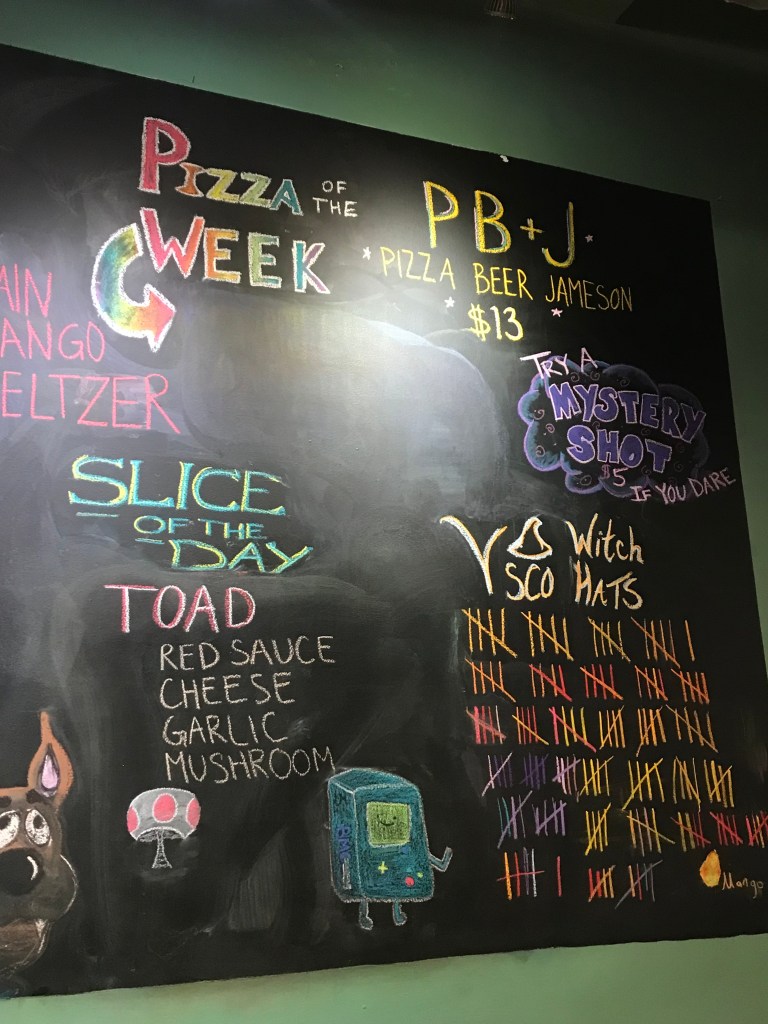 PIZZA OF THE
WEEK
PB+J
PIZZA BEER JAMESON
$13
AIN
ANGO
ELTZER
TRY A
MYSTERY
SHOT
$5
IF YOU DARE
SLICE
OF THE
DAY
TOAD
RED SAUCE
CHEESE
GARLIC
MUSHROOM
Witch
SCO HATS
BMO
Mango